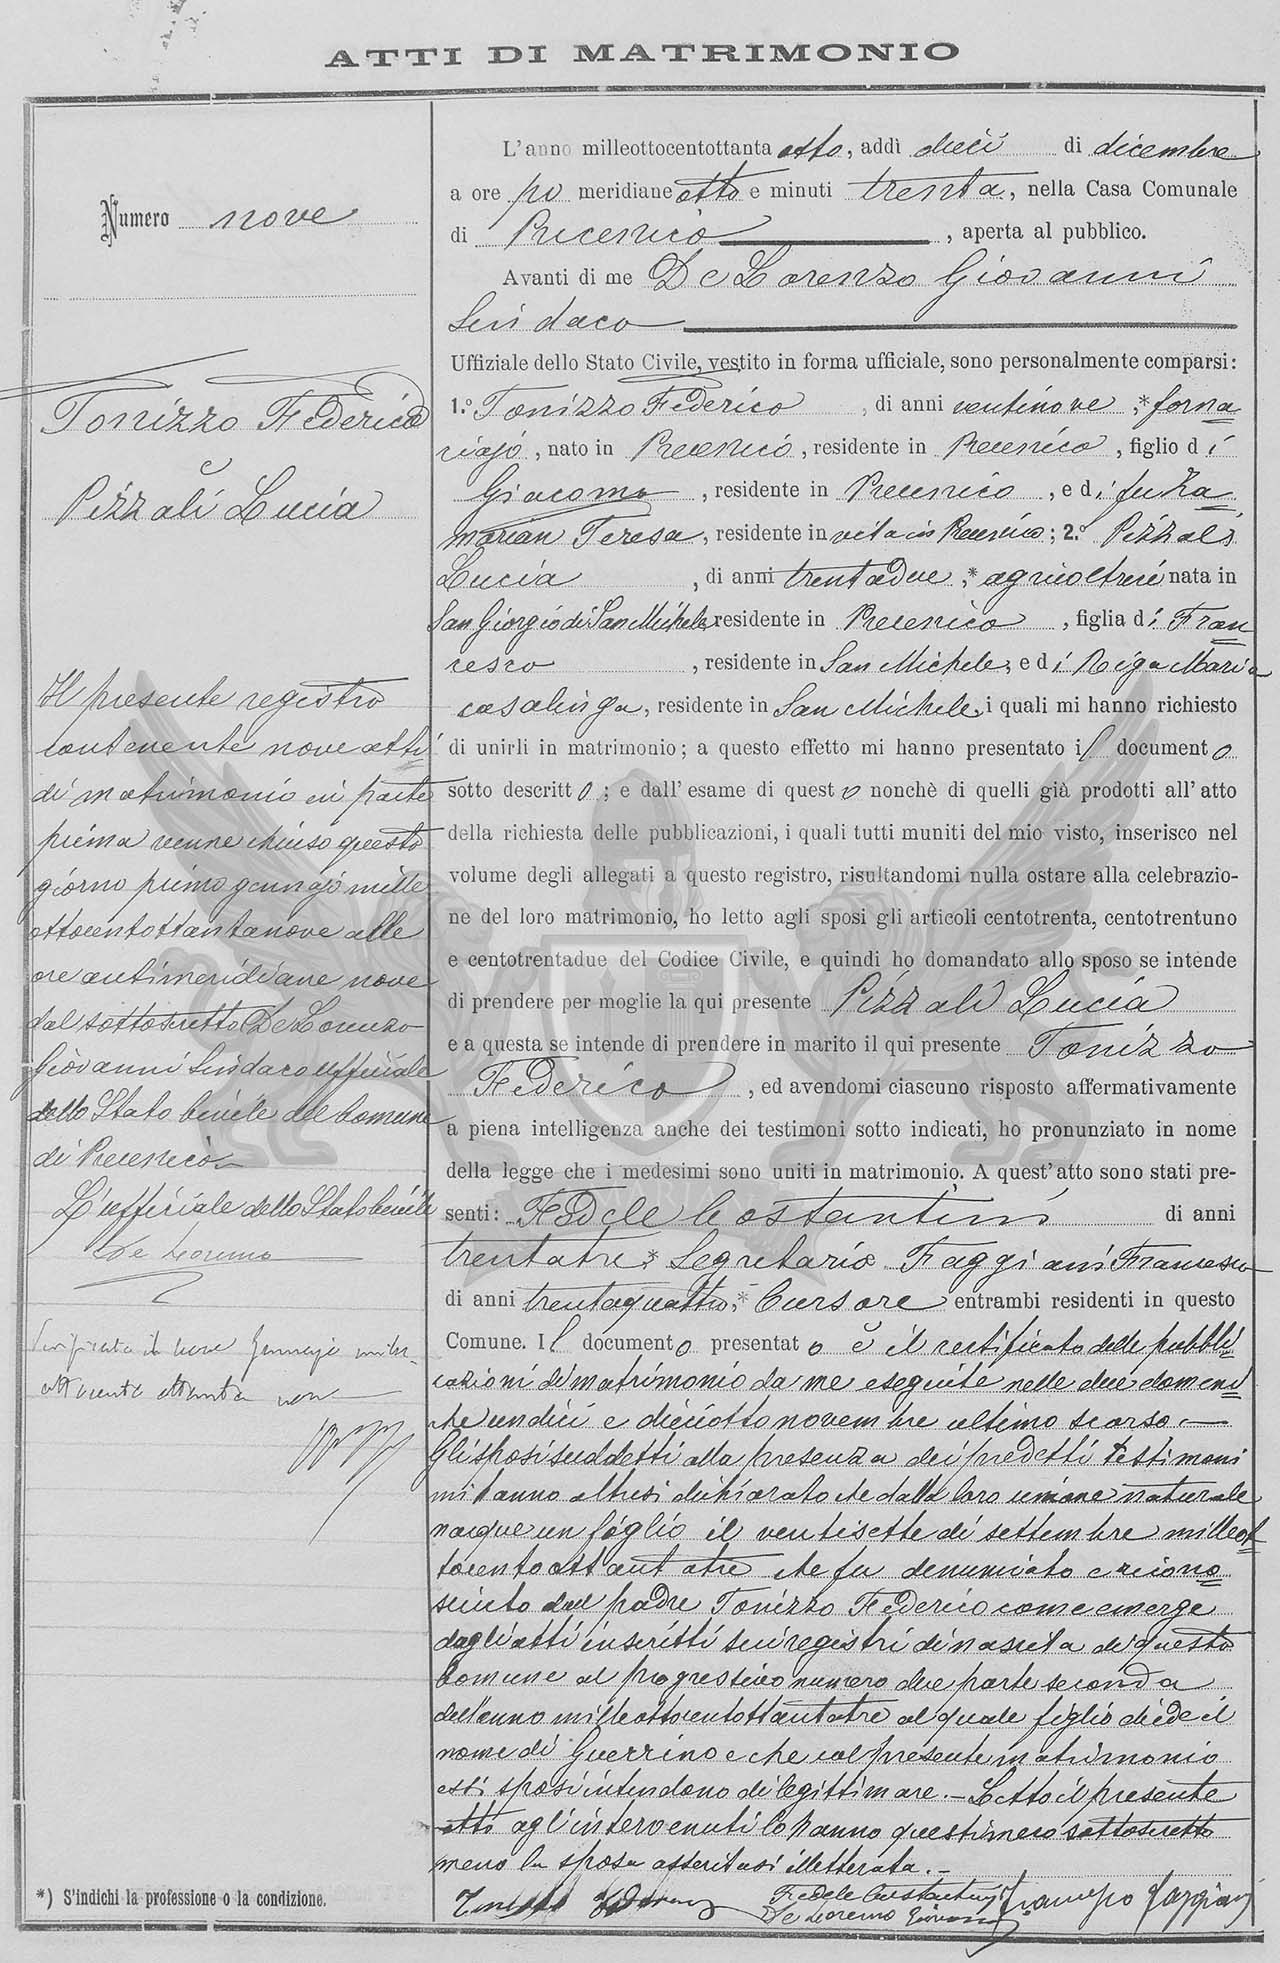 ATTI DI MATRIMONIO
Numero nove
Tonizzo Federico
e
Pizzali Lucia
Il presente registro
contenente nove atti
di matrimonio in parte
prima venne chiuso questo
giorno primo gennajo mille
ottocentottantanove alle
ore antimeridiane nove
dal sottoscritto De Lorenzo
Giovanni Sindaco Ufficiale
dello Stato Civile del Comune
di Precenico
L'ufficiale dello Stato Civile
De Lorenzo
*) S'indichi la professione o la condizione.
L'anno milleottocentottanta otto, addì dieci di dicembre
a ore po meridiane otto e minuti trenta, nella Casa Comunale
di Precenico, aperta al pubblico.
Avanti di me De Lorenzo Giovanni
Sindaco
Uffiziale dello Stato Civile, vestito in forma ufficiale, sono personalmente comparsi:
1.° Tonizzo Federico, di anni ventinove, * forna
ciajo, nato in Precenico, residente in Precenico, figlio di
Giacomo, residente in Precenico, e di fu Za
marian Teresa, residente in vita in Precenico; 2.° Pizzali
Lucia, di anni trentadue, * agricoltrice nata in
San Giorgio di San Michele, residente in Precenico, figlia di Fran
cesco, residente in San Michele, e di Riga Maria
casalinga, residente in San Michele, i quali mi hanno richiesto
di unirli in matrimonio; a questo effetto mi hanno presentato il documento
sotto descritto; e dall'esame di questo nonchè di quelli già prodotti all'atto
della richiesta delle pubblicazioni, i quali tutti muniti del mio visto, inserisco nel
volume degli allegati a questo registro, risultandomi nulla ostare alla celebrazio-
ne del loro matrimonio, ho letto agli sposi gli articoli centotrenta, centotrentuno
e centotrentadue del Codice Civile, e quindi ho domandato allo sposo se intende
di prendere per moglie la qui presente Pizzali Lucia
e a questa se intende di prendere in marito il qui presente Tonizzo
Federico, ed avendomi ciascuno risposto affermativamente
a piena intelligenza anche dei testimoni sotto indicati, ho pronunziato in nome
della legge che i medesimi sono uniti in matrimonio. A quest'atto sono stati pre-
senti: Fedele Costantini di anni
trentatre, * Segretario Faggiani Francesco
di anni trentaquattro, * Cursore entrambi residenti in questo
Comune. Il documento presentato è il certificato delle pubbli
cazioni di matrimonio da me eseguite nelle due domeni
che undici e diciotto novembre ultimo scorso.—
Gli sposi suddetti alla presenza dei predetti testimoni
mi hanno altresì dichiarato che dalla loro unione naturale
nacque un figlio il ventisette di settembre milleot
tocentottantatre che fu denunciato e ricono
sciuto dal padre Tonizzo Federico come emerge
dagli atti inscritti sui registri di nascita di questo
Comune al progressivo numero due parte seconda
dell'anno milleottocentottantatre al quale figlio diede il
nome di Guerrino e che col presente matrimonio
essi sposi intendono di legittimare.— Letto il presente
atto agli intervenuti lo hanno questi meco sottoscritto
meno la sposa asseritasi illetterata.—
Tonizzo Federico Fedele Costantini Francesco Faggiani
De Lorenzo Giovanni